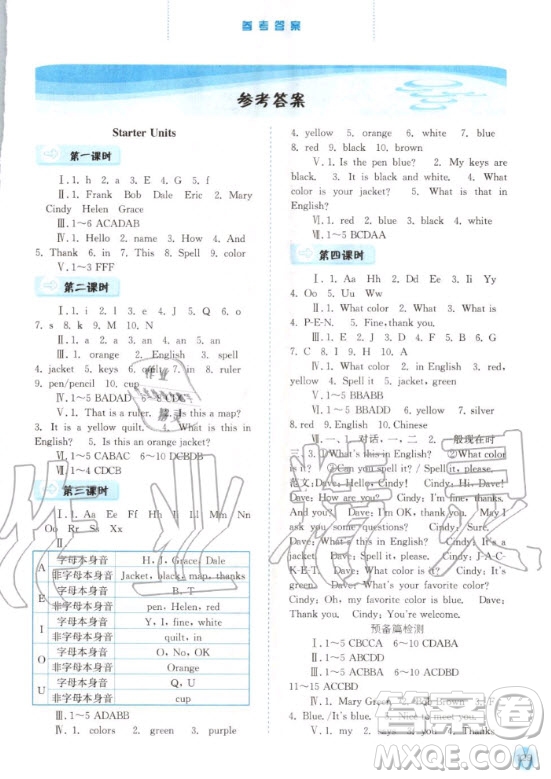 参考答案
参考答案
Starter Units
第一课时
Ⅰ.1. h 2. a 3. E 4. G 5. f
Ⅱ.1. Frank Bob Dale Eric 2. Mary
Cindy Helen Grace
Ⅲ.1~6 ACADAB
Ⅳ.1. Hello 2. name 3. How 4. And
5. Thank 6. in 7. This 8. spell 9. color
Ⅴ.1~3 FFF
第二课时
Ⅰ.1. i 2. l 3. e 4. J 5. Q 6. o
7. s 8. k 9. M 10. N
Ⅱ.1. a 2. an 3. a 4. an 5. an
Ⅲ.1. orange 2. English 3. spell
4. jacket 5. keys 6. quilt 7. in 8. ruler
9. pen/pencil 10. cup
Ⅳ.1~5 BADAD 6~8 CDC
Ⅴ.1. That is a ruler. 2. Is this a map?
3. It is a yellow quilt. 4. What is this in
English? 5. Is this an orange jacket?
Ⅵ.1~5 CABAC 6~10 DCBDB
Ⅶ.1~4 CDCB
第三课时
Ⅰ.1. Aa Ee Ff Gg Ii Mm Nn
Oo Rr Ss Xx
A 字母本身音 H, J, Grace, Dale
非字母本身音 Jacket, black, map, thanks
E 字母本身音 B, T
非字母本身音 pen, Helen, red
I 字母本身音 Y, I, fine
非字母本身音 quilt, in
O 字母本身音 O, No, OK
非字母本身音 Orange
U 字母本身音 Q, U
非字母本身音 cup
Ⅲ.1~5 ADABB
Ⅳ.1. colors 2. green 3. purple
4. yellow 5. orange 6. white 7. blue
8. red 9. black 10. brown
Ⅴ.1. Is the pen blue? 2. My keys are
black. 3. It is black and white. 4. What
color is your jacket? 5. What is that in
English?
Ⅵ.1. red 2. blue 3. black 4. white
Ⅶ.1~5 BCDAA
第四课时
Ⅰ.1. Aa Hh Jj Kk 2. Ii Yy 3. Oo
4. Qq Uu Ww
Ⅱ.1. What color 2. What is 3. What is
4. P-E-N. 5. Fine, thank you.
Ⅲ.1. E 2. D 3. B 4. C 5. A
Ⅳ.1. What color 2. in English 3. red,
yellow 4. Spell it 5. jacket, green
Ⅴ.1~5 BBABB
Ⅵ.1~5 BBADD 6. yellow 7. silver
8. red 9. English 10. Chinese
Ⅶ.一、1. 对话,一,二 2. 一般现在时
三、3. ①What's this in English? ②What color
is it? ③Can you spell it? / Spell it, please.
范文:Dave: Hello, Cindy! Cindy: Hello,
Dave! How are you? Dave: I'm fine, thanks.
And you? Dave: I'm OK, thank you. May I
ask you some questions? Cindy: Sure.
Dave: What's this in English? Cindy: It's a
jacket. Dave: Spell it, please. Cindy: J-A-C-
K-E-T. Dave: What color is it? Cindy: It's
green. Dave: What's your favorite color?
Cindy: Oh, my favorite color is blue. Dave:
Thank you. Cindy: You're welcome.
预备篇检测
Ⅰ.1~5 CBCCA 6~10 CDABA
Ⅱ.1~5 ABCDD
Ⅲ.1~5 ACBBA 6~10
11~15 ACCBD
Ⅳ.1. Mary Green
4. Blue./It's blue. 5. Nice to meet you.
Ⅴ.1. my 2. says 3. can